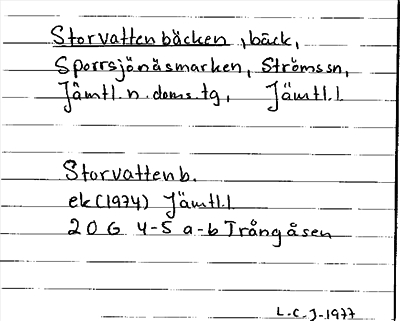 Storvattenbäcken, bäck,
Sporrsjönäsmarken, Ströms sn,
Jämtl. n. doms. tg, Jämtl. l.
Storvatten b.
ek (1974) Jämtl. l
20 G 4-5 a-b Trångåsen
L.C.J-1977